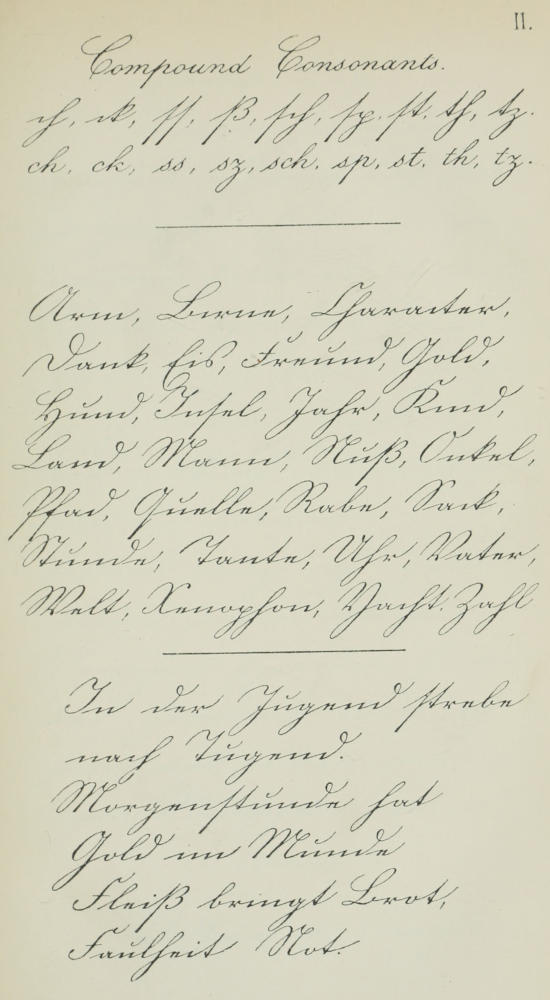 II.
Compound Consonants.
ch, ck, ss, ß, sch, sp, st, th, tz.
ch, ck, ss, sz, sch, sp, st, th, tz.
Arm, Birne, Character,
Dank, Eis, Freund, Gold,
Hund, Insel, Jahr, Kind,
Land, Mann, Nuß, Onkel,
Pfad, Quelle, Rabe, Sack,
Stunde, Tante, Uhr, Vater,
Welt, Xenophon, Yacht. Zahl
In der Jugend strebe
nach Tugend.
Morgenstunde hat
Gold im Munde
Fleiß bringt Brot,
Faulheit Not.